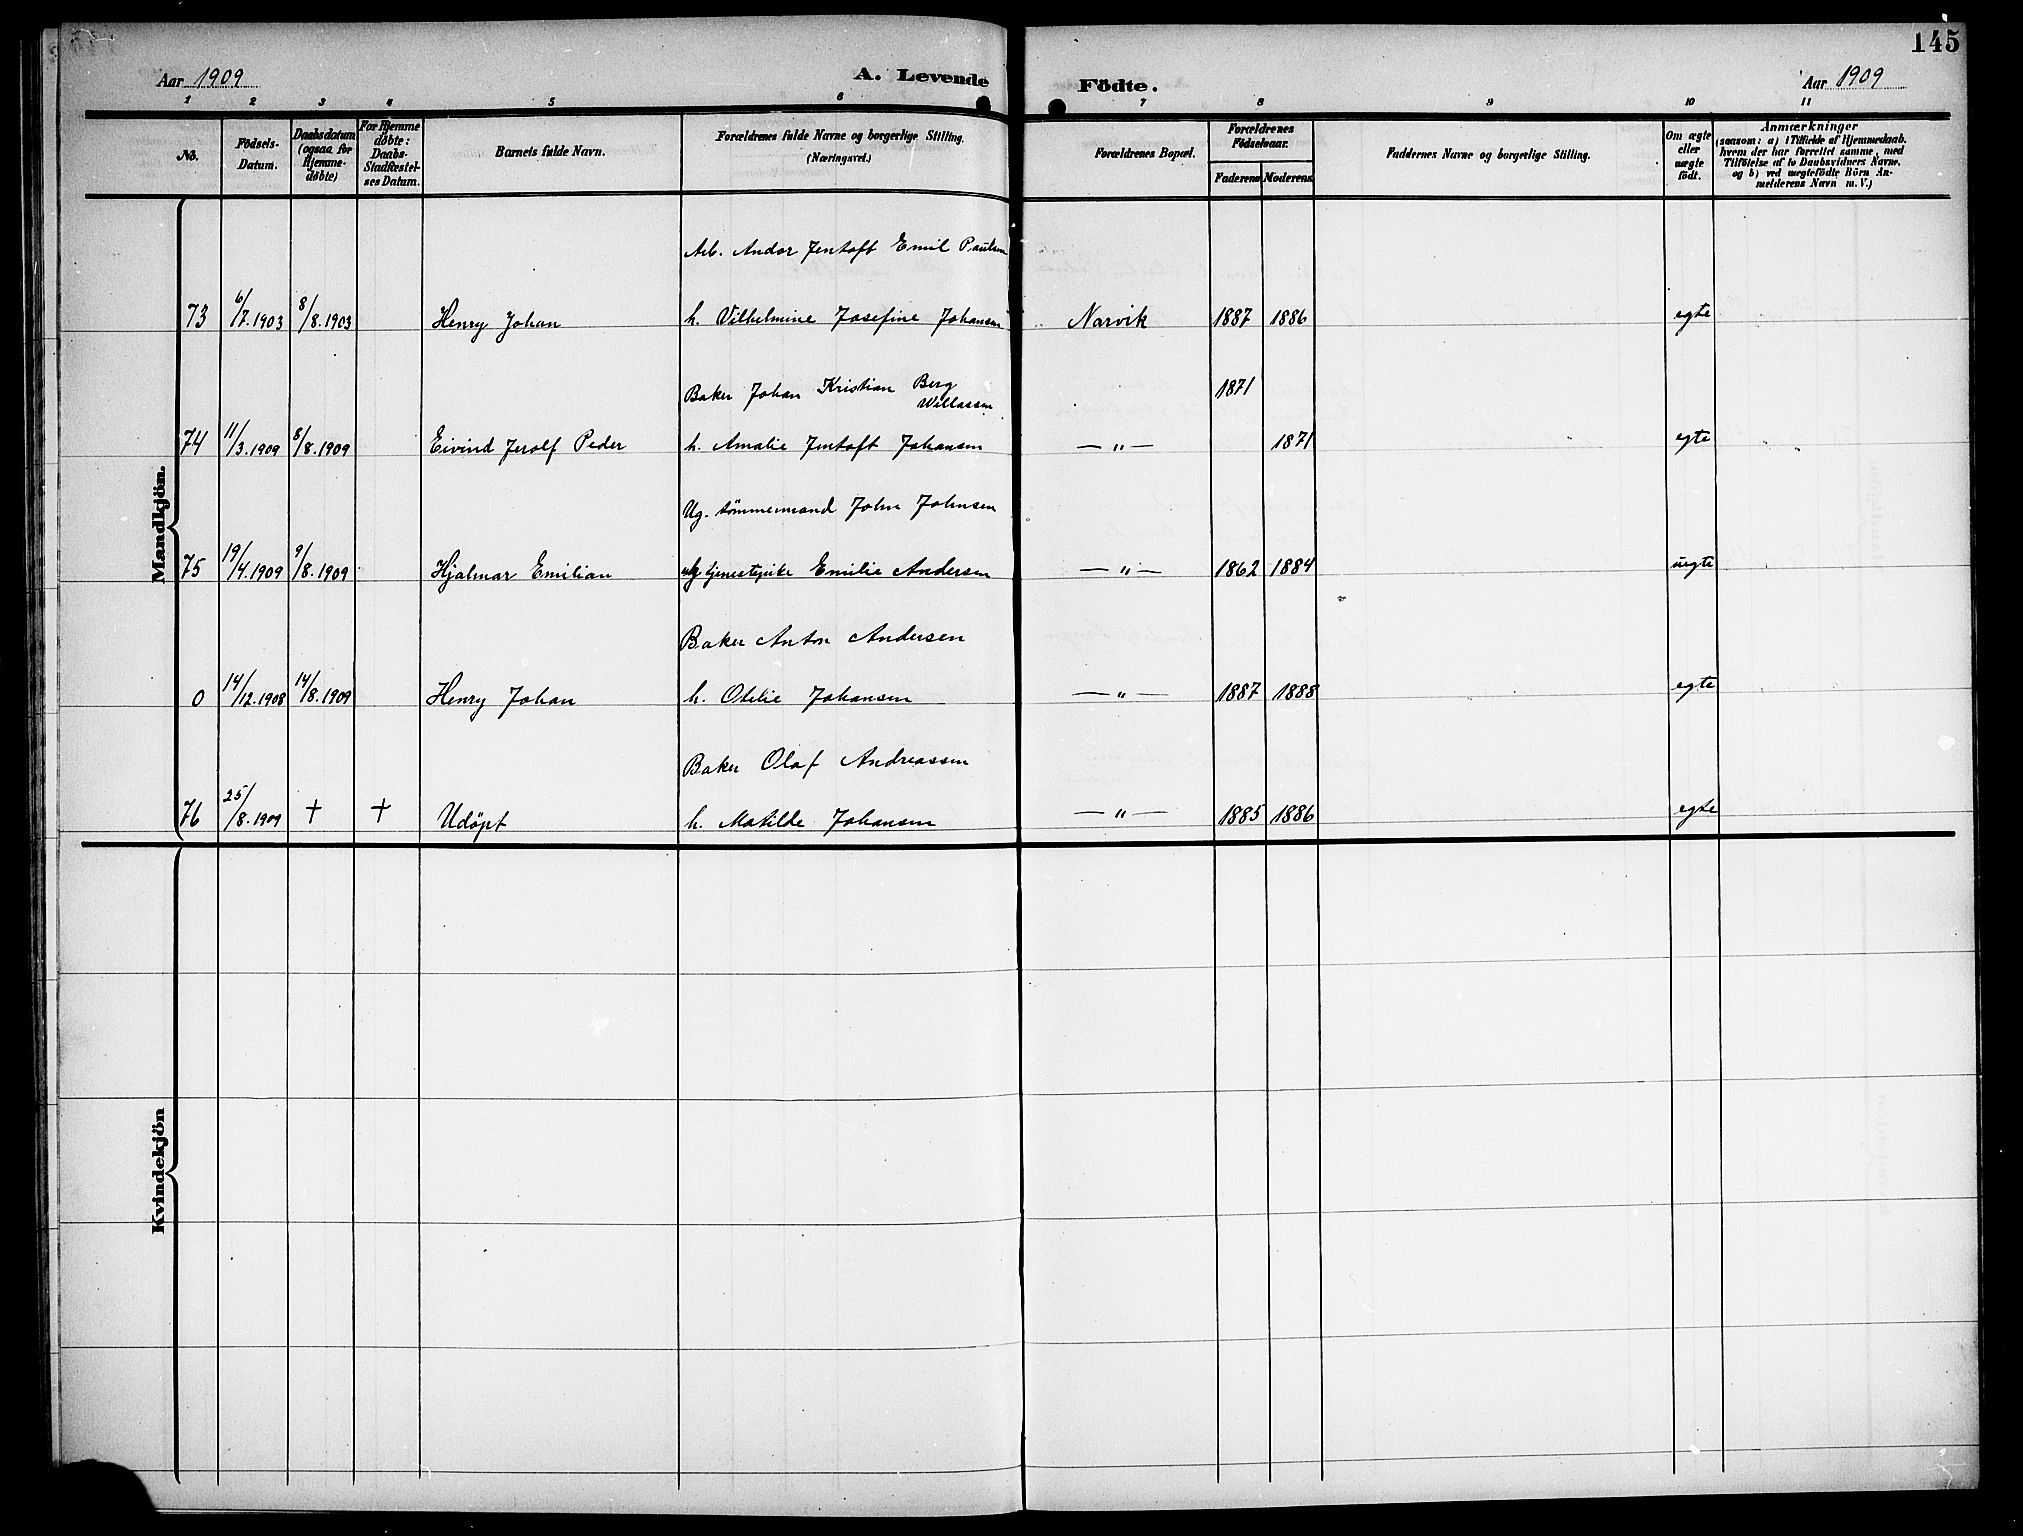 145
Aar 1909
A. Levende Födte.
Aar 1909
1 2 3 4 5 6 7 8 9 10 11
No.
Födsels-Datum.
Daabsdatum (ogsaa for Hjemme-döbte)
For Hjemme döbte: Daabs-Stadfæstel-ses Datum.
Barnets fulde Navn.
Forældrenes fulde Navne og borgerlige Stilling.
(Næringsvei.)
Forældrenes Bopæl.
Forældrenes Födselsaar.
Faderens Moderens
Faddernes Navne og borgerlige Stilling.
Om ægte eller uægte födt.
Anmærkninger
(saasom: a) i Tilfælde af Hjemmedaab.
hvem der har forrettet samme, med
Tilföielse af to Daabsvidners Navne,
og b) ved uægtefödte Börn An-
melderens Navn m. V.)
Mandkjön.
Arb. Andor Jentoft Emil Paulsen
73 6/7.1903 8/8.1903 Henry Johan h. Vilhelmine Josefine Johansen Narvik 1887 1886 egte
Baker Johan Kristian Berg 1871
Willassen
74 11/3.1909 8/8.1909 Eivind Jerolf Peder h. Amalie Jentoft Johansen — " — 1871 egte
Ug. tømmermand John Johnsen
75 19/4.1909 9/8.1909 Hjalmar Emilian ug tjenestepike Emilie Andersen — " — 1862 1884 uegte
Baker Anton Andersen
0 14/12.1908 14/8.1909 Henry Johan h. Otelie Johansen — " — 1887 1888 egte
Baker Olaf Andreassen
76 25/8.1909 + + Udøpt h. Matilde Johansen — " — 1885 1886 egte
Kvindekjön